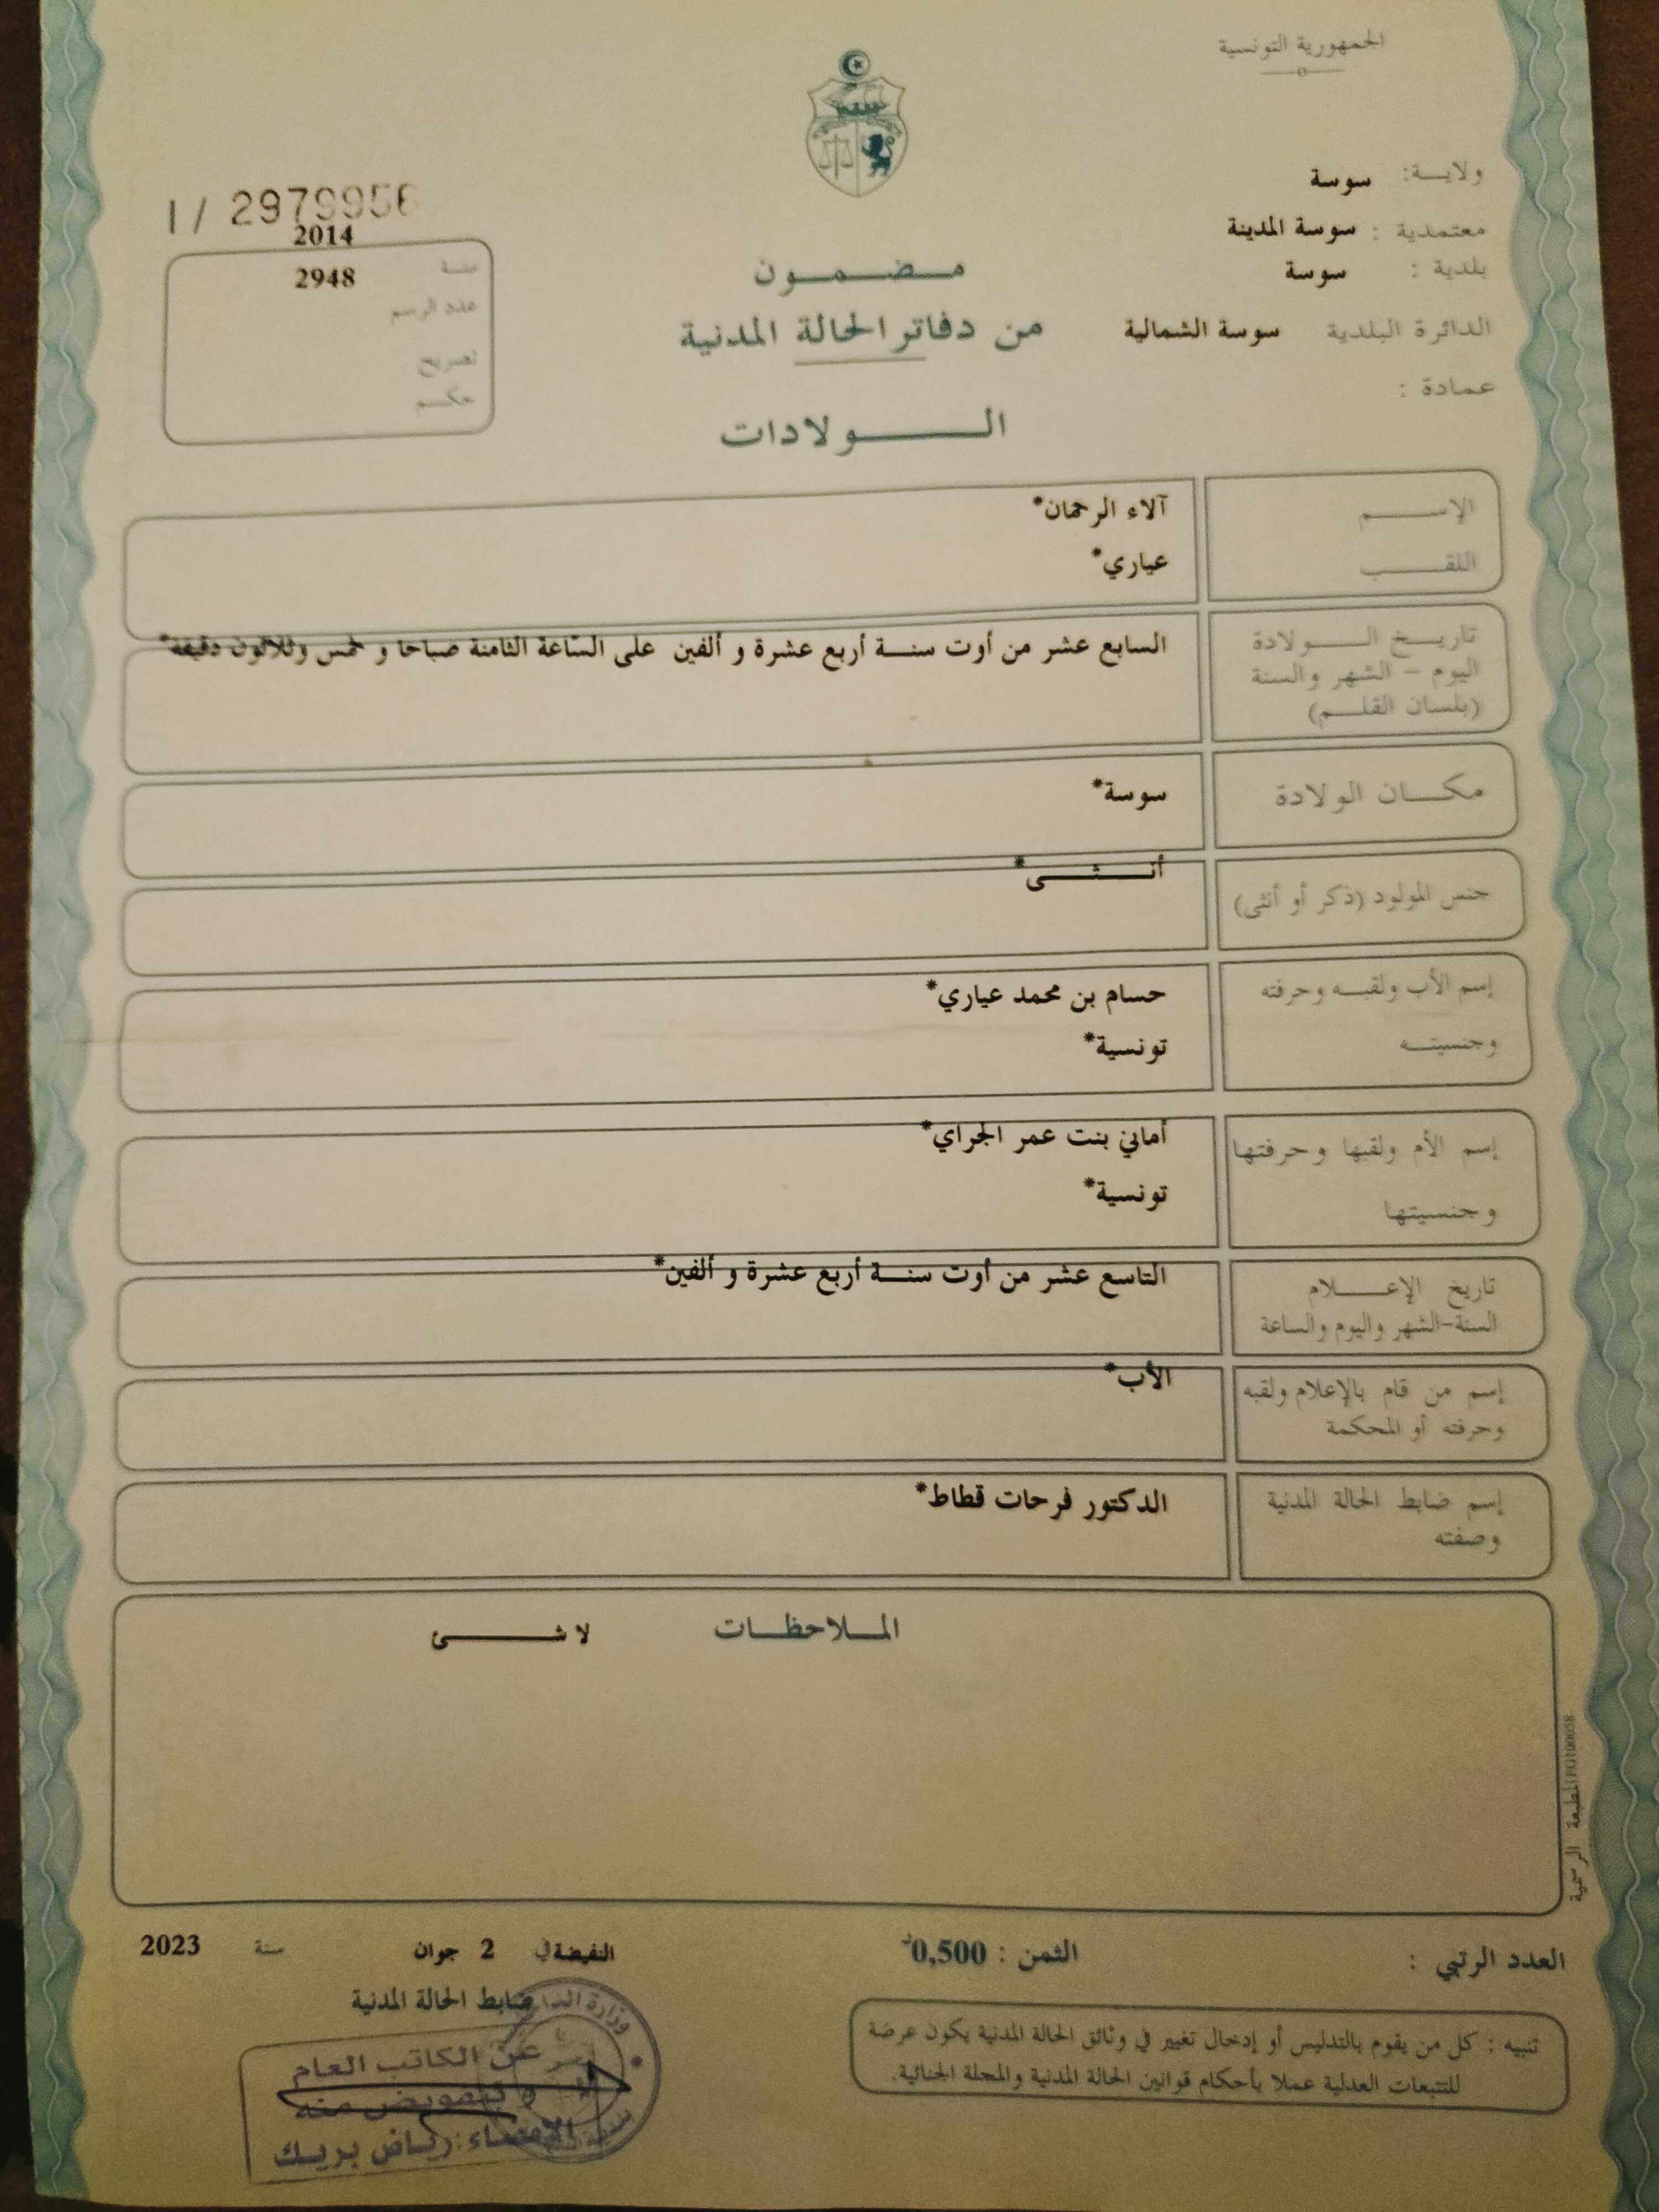 الجمهورية التونسية
ولايـة: سوسة
معتمدية : سوسة المدينة
بلدية : سوسة
الدائرة البلدية سوسة الشمالية
عمادة :
مـضـمـون
من دفاتر الحالة المدنية
الـولادات
I / 2979956
2014
سنة 2948
عدد الرسم
تصريح
حكم
الإسـم آلاء الرحمان*
اللقـب عياري*
تاريـخ الـولادة السابع عشر من أوت سنـة أربع عشرة و ألفين على السّاعة الثامنة صباحا و خمس وثلاثون دقيقة*
اليوم - الشهر والسنة
(بلسان القلـم)
مكـان الولادة سوسة*
جنس المولود (ذكر أو أنثى) أنـثـى*
إسم الأب ولقبـه وحرفته حسام بن محمد عياري*
وجنسيتـه تونسية*
إسم الأم ولقبها وحرفتها أماني بنت عمر الجراي*
وجنسيتها تونسية*
تاريخ الإعـلام التاسع عشر من أوت سنـة أربع عشرة و ألفين*
السنة-الشهر واليوم والساعة
إسم من قام بالإعلام ولقبه الأب*
وحرفته أو المحكمة
إسم ضابط الحالة المدنية الدكتور فرحات قطاط*
وصفته
المـلاحظـات لا شـئ
المطبعة الرسمية
العدد الرتبي :
الثمن : 0,500د
النفيضة في 2 جوان سنة 2023
ضابط الحالة المدنية
تنبيه : كل من يقوم بالتدليس أو إدخال تغيير في وثائق الحالة المدنية يكون عرضة
للتتبعات العدلية عملا بأحكام قوانين الحالة المدنية والمجلة الجنائية.
عن الكاتب العام
وبتفويض منه
الإمضاء: رياض بريك